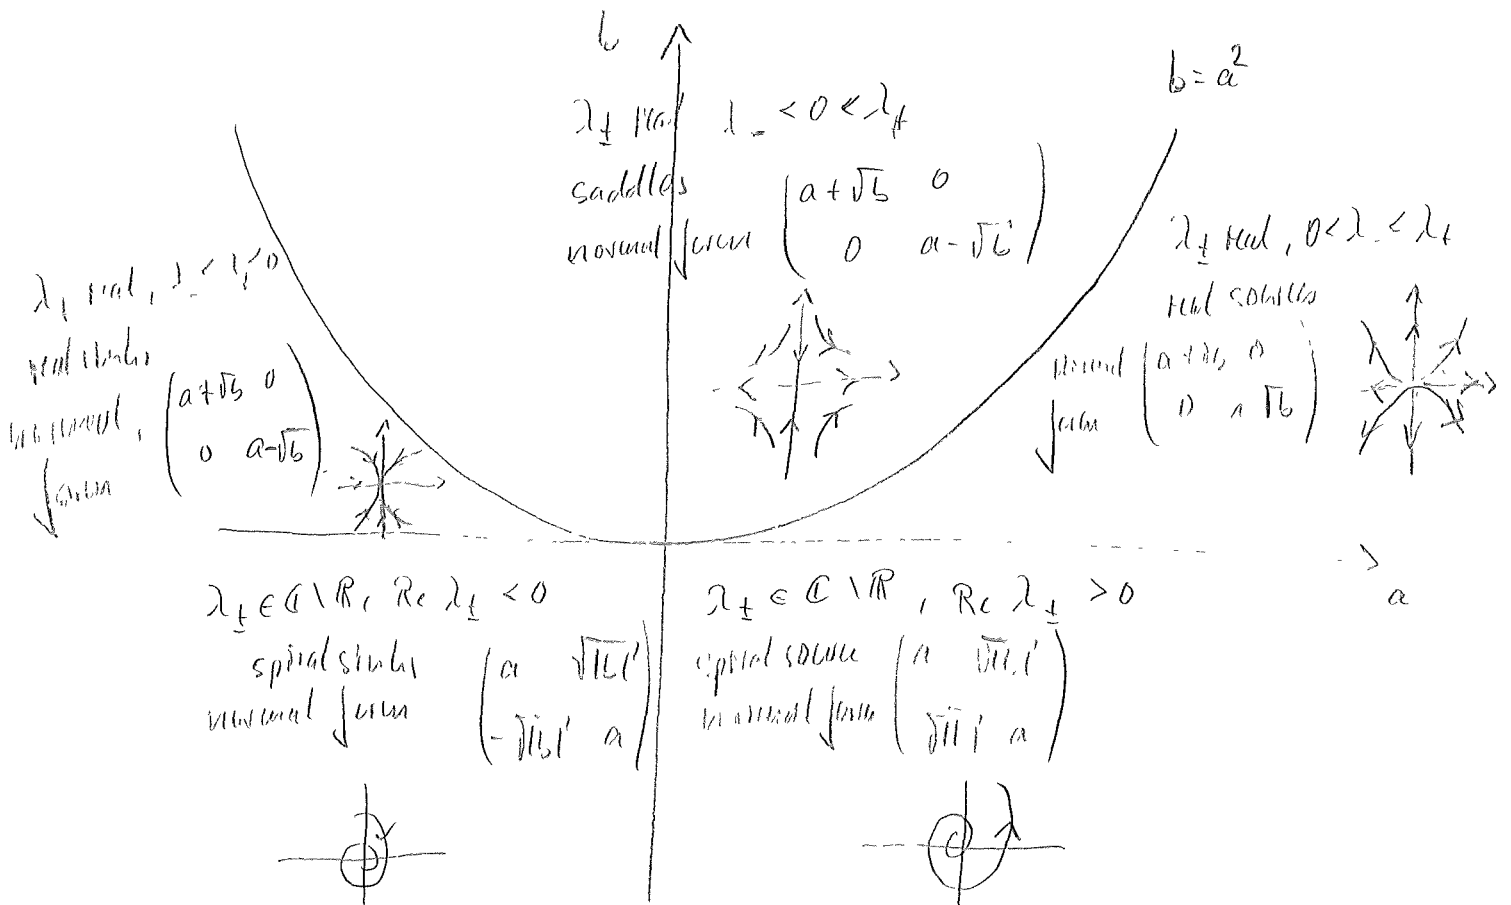 b
b = a²
λ± real λ₋ < 0 < λ₊
saddles
normal form
( a + √b 0
0 a - √b )
λ± real, λ₋ < λ₊ < 0
real sinks
normal form
( a + √b 0
0 a - √b )
λ± real, 0 < λ₋ < λ₊
real sources
normal form
( a + √b 0
0 a √b )
a
λ± ∈ ℂ \ ℝ, Re λ± < 0
spiral sinks
normal form
( a √|b|
-√|b| a )
λ± ∈ ℂ \ ℝ, Re λ± > 0
spiral source
normal form
( a √|b|
a )